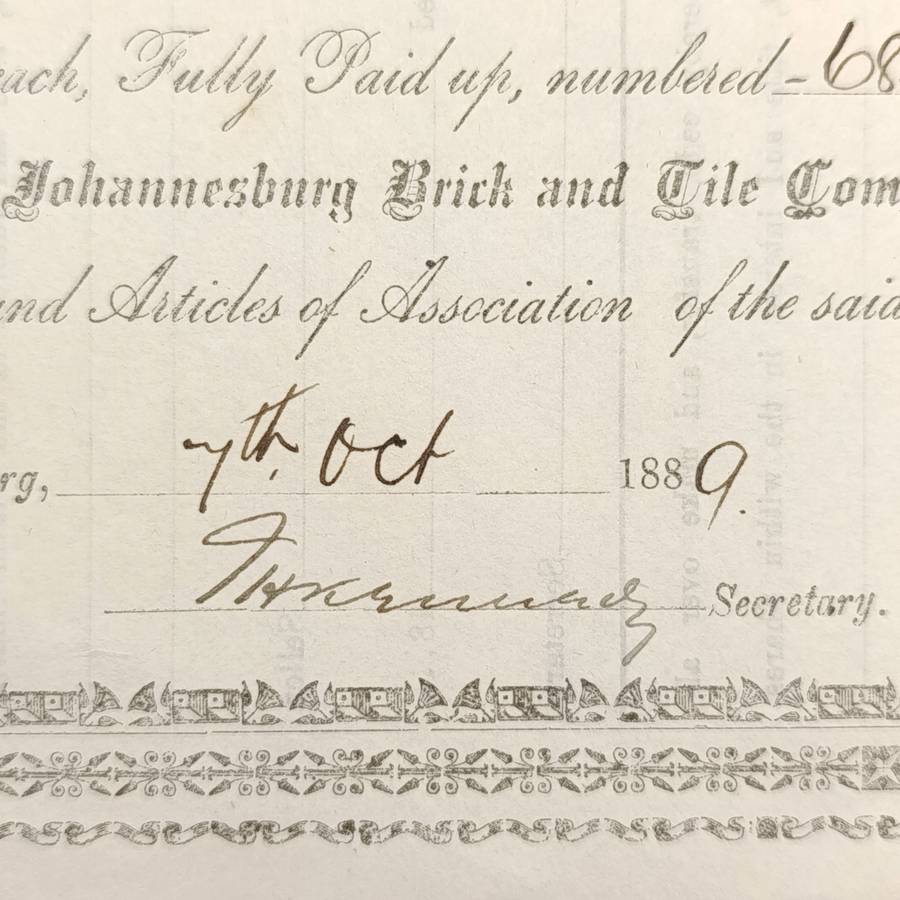 each, Fully Paid up, numbered - 68
Johannesburg Brick and Tile Com
and Articles of Association of the said
rg, 7th Oct 1889.
THKennedy Secretary.